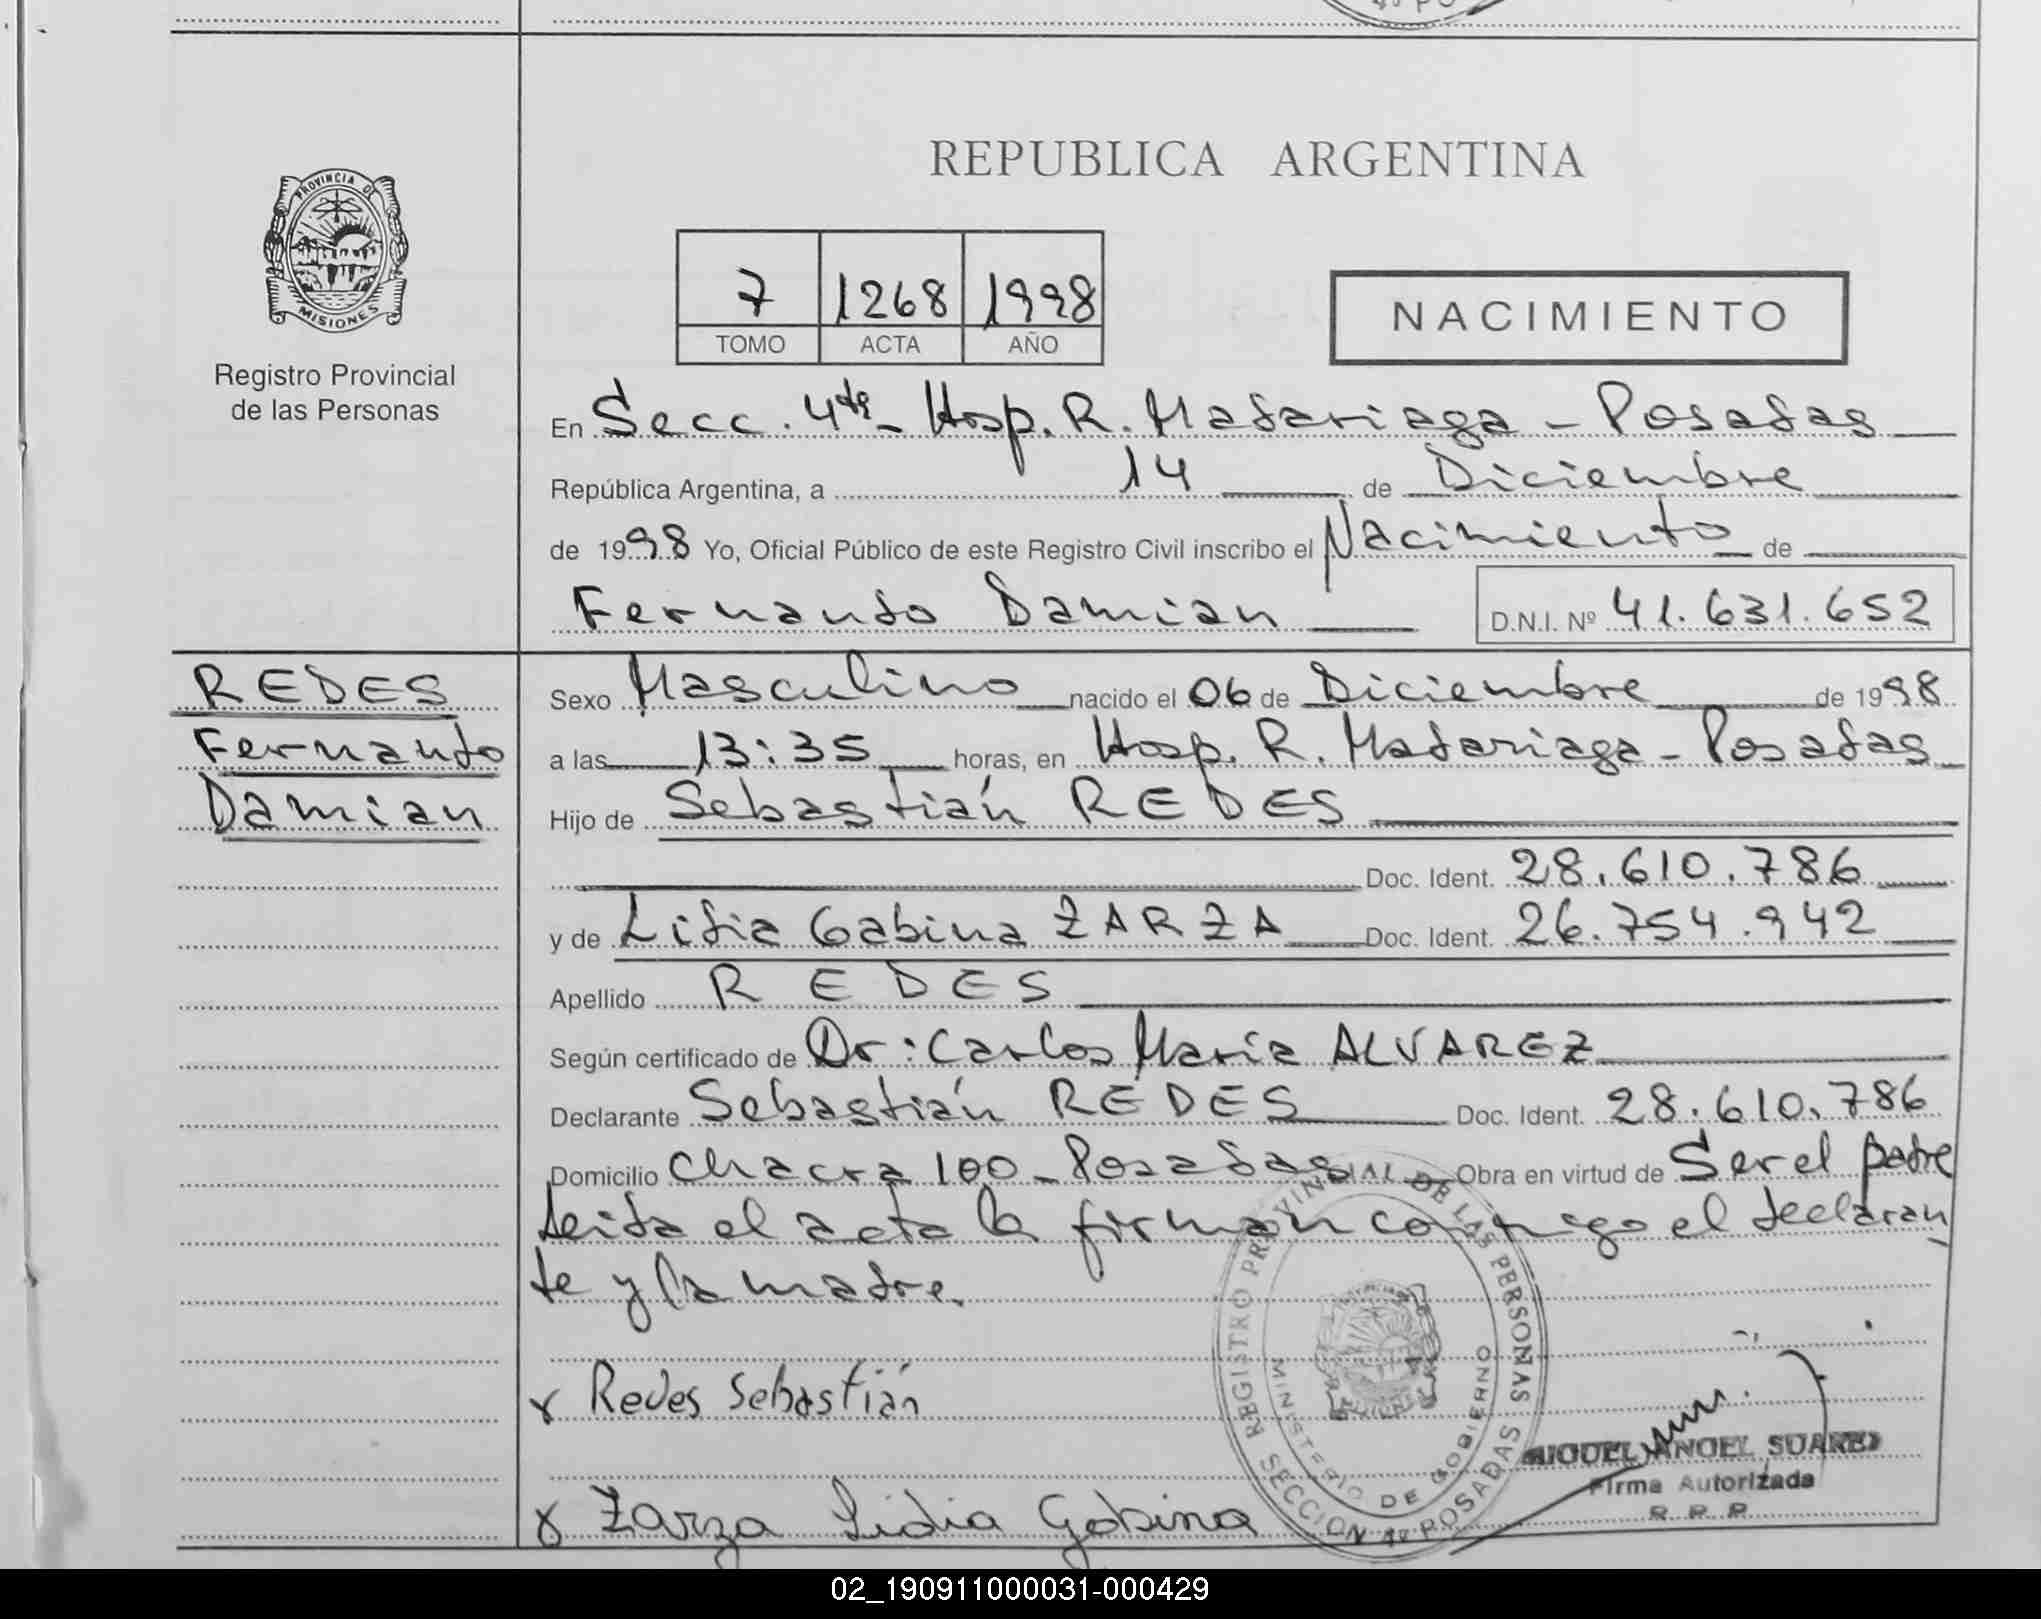 PROVINCIA DE
MISIONES
Registro Provincial
de las Personas
REPUBLICA ARGENTINA
7 1268 1998
TOMO ACTA AÑO
NACIMIENTO
En Secc. 4ta - Hosp. R. Madariaga - Posadas
República Argentina, a 14 de Diciembre
de 1998 Yo, Oficial Público de este Registro Civil inscribo el Nacimiento de
Fernando Damian D.N.I. Nº 41.631.652
REDES
Fernando
Damian
Sexo Masculino nacido el 06 de Diciembre de 1998
a las 13:35 horas, en Hosp. R. Madariaga - Posadas
Hijo de Sebastián REDES
Doc. Ident. 28.610.786
y de Lidia Gabina ZARZA Doc. Ident. 26.754.942
Apellido REDES
Según certificado de Dr: Carlos María ALVAREZ
Declarante Sebastián REDES Doc. Ident. 28.610.786
Domicilio Chacra 100 - Posadas Obra en virtud de Ser el padre
Leida el acta la firman conmigo el declaran
te y la madre.
x Redes Sebastián
x Zarza Lidia Gabina
REGISTRO PROVINCIAL DE LAS PERSONAS
SECCION 4º POSADAS
MINISTERIO DE GOBIERNO
MIGUEL ANGEL SUAREZ
Firma Autorizada
R. P. P.
02_190911000031-000429